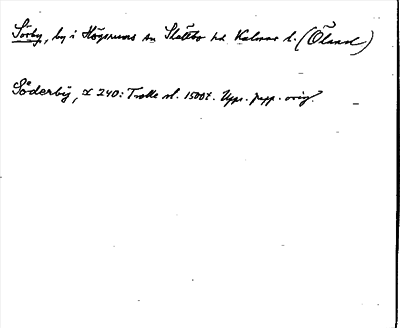 Sörby, by i Högsrums sn Slättbo hd Kalmar l. (Öland)
Söderby, α 240: Trolle sl. 1500t. Upps. papp. orig.